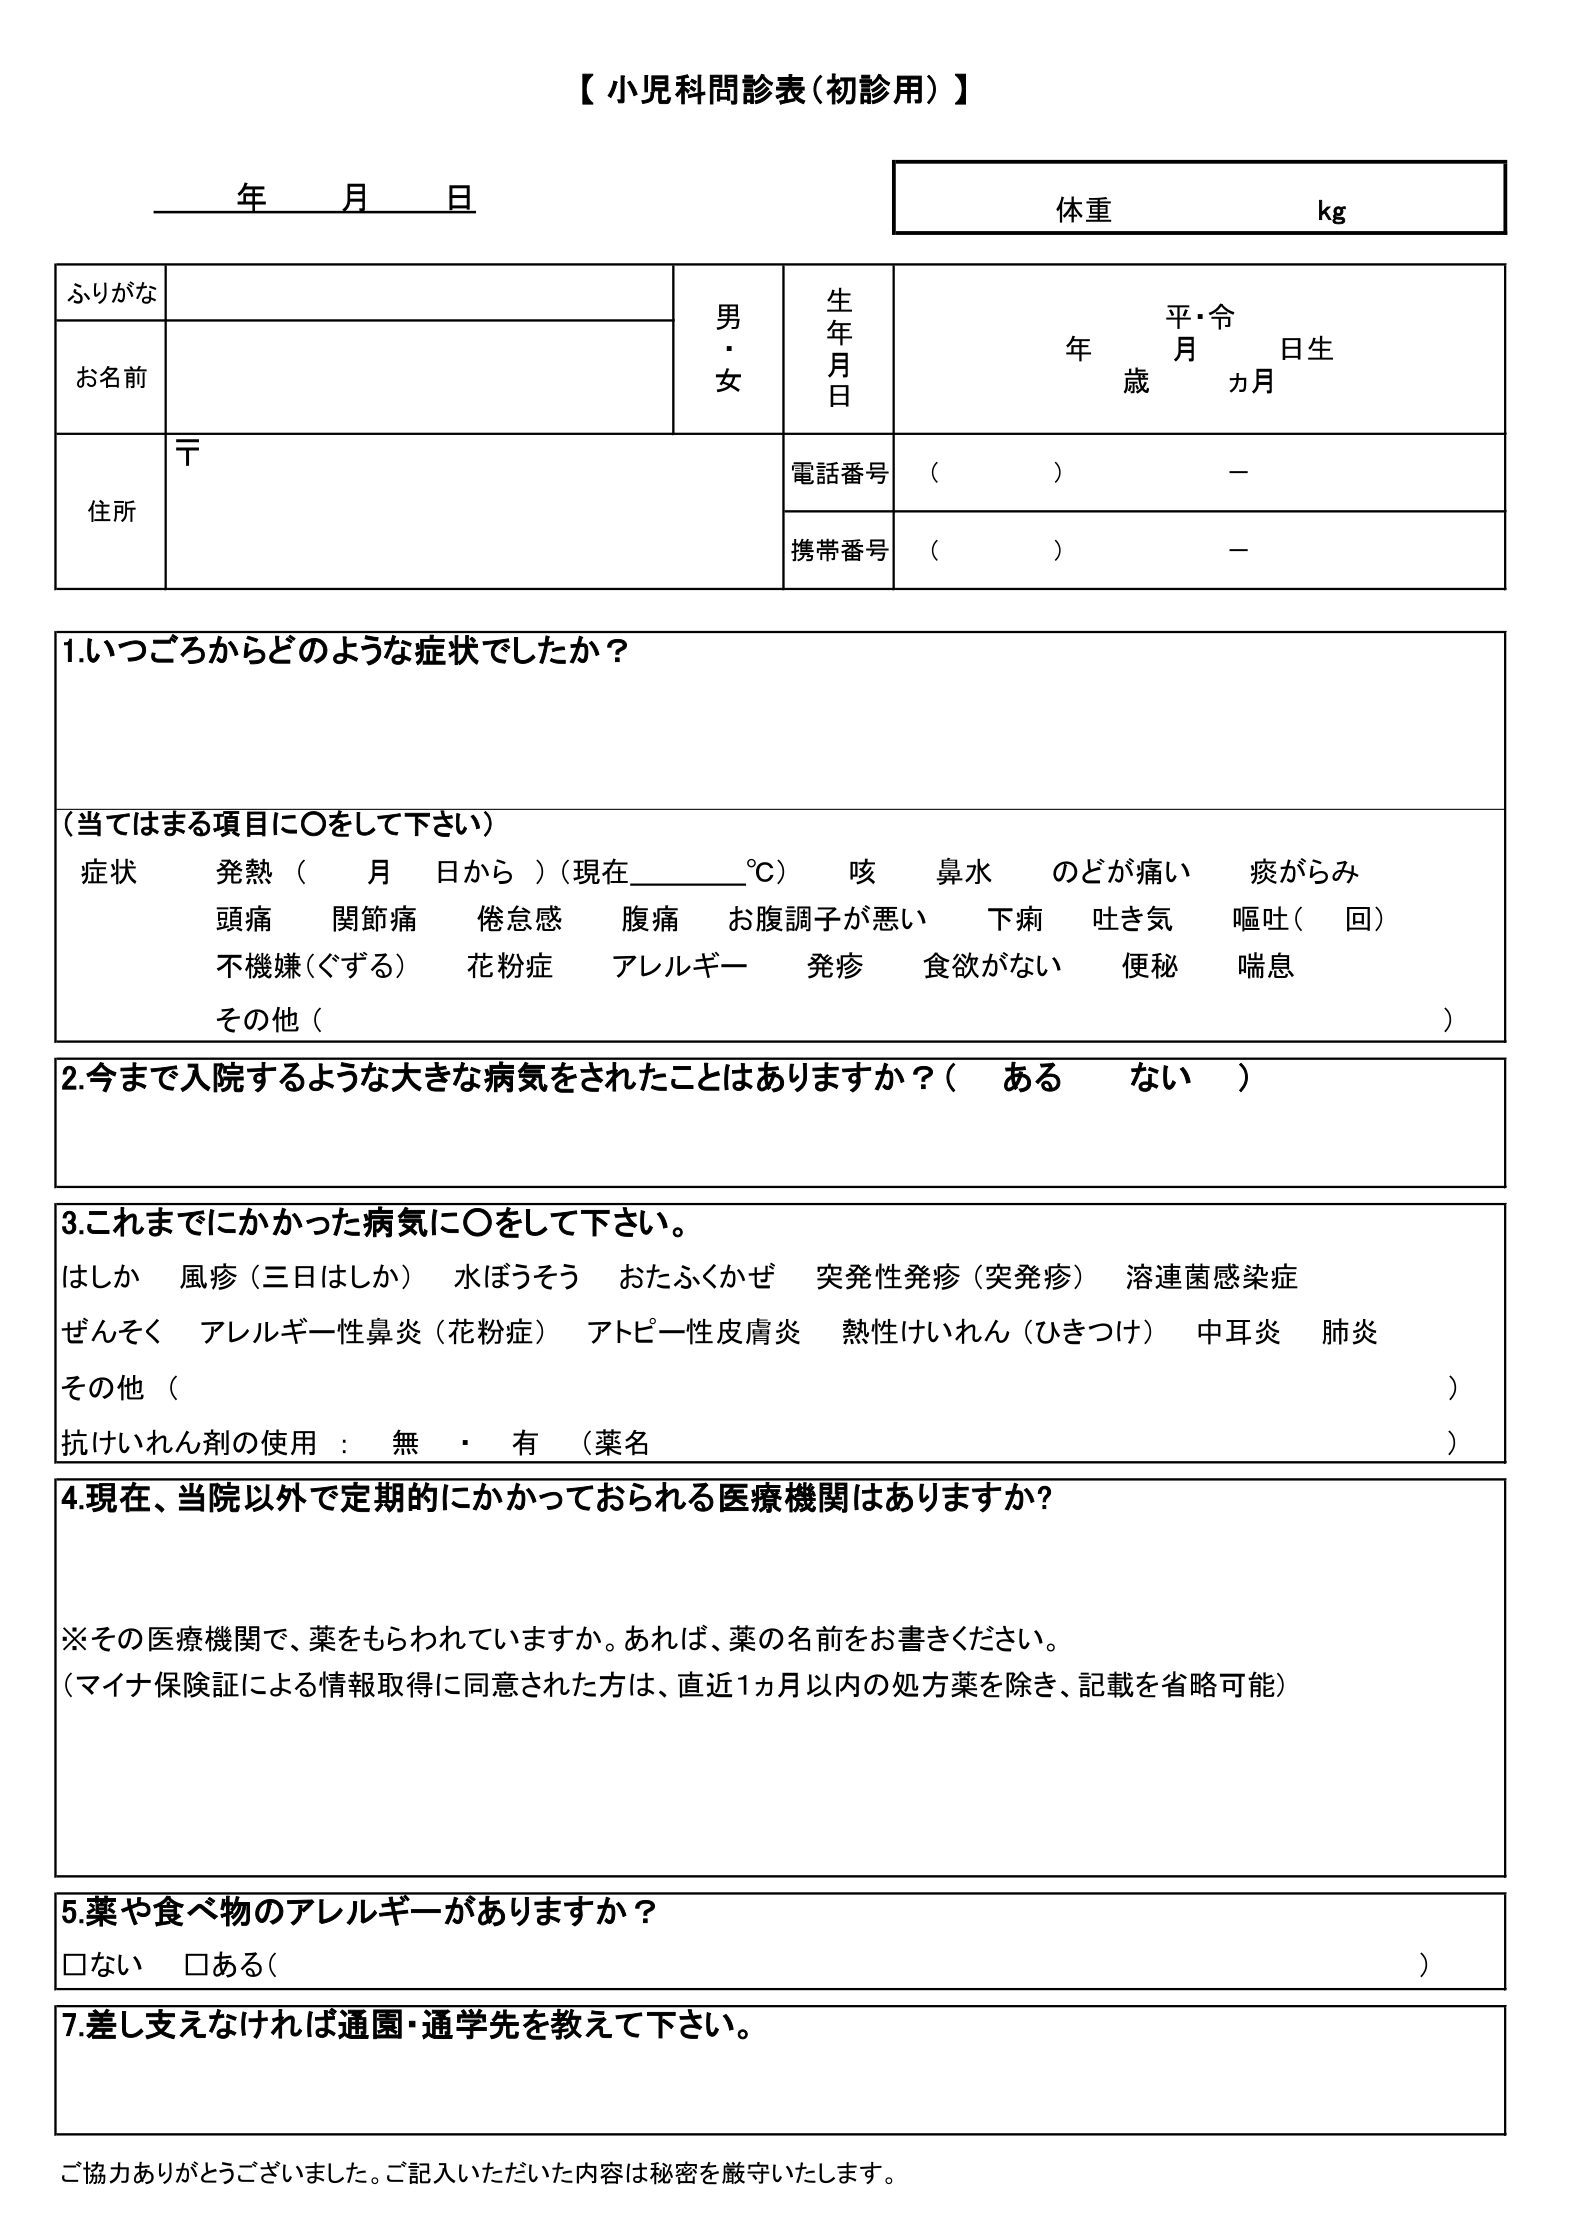 【 小児科問診表（初診用） 】
年 月 日
体重 kg
ふりがな
お名前
男・女
生年月日
平・令
年 月 日生
歳 ヵ月
住所
〒
電話番号 （ ） －
携帯番号 （ ） －
1.いつごろからどのような症状でしたか？
（当てはまる項目に〇をして下さい）
症状 発熱 （ 月 日から ）（現在________℃） 咳 鼻水 のどが痛い 痰がらみ
頭痛 関節痛 倦怠感 腹痛 お腹調子が悪い 下痢 吐き気 嘔吐（ 回）
不機嫌（ぐずる） 花粉症 アレルギー 発疹 食欲がない 便秘 喘息
その他（ ）
2.今まで入院するような大きな病気をされたことはありますか？（ ある ない ）
3.これまでにかかった病気に〇をして下さい。
はしか 風疹（三日はしか） 水ぼうそう おたふくかぜ 突発性発疹（突発疹） 溶連菌感染症
ぜんそく アレルギー性鼻炎（花粉症） アトピー性皮膚炎 熱性けいれん（ひきつけ） 中耳炎 肺炎
その他 （ ）
抗けいれん剤の使用 ： 無 ・ 有 （薬名 ）
4.現在、当院以外で定期的にかかっておられる医療機関はありますか?
※その医療機関で、薬をもらわれていますか。あれば、薬の名前をお書きください。
（マイナ保険証による情報取得に同意された方は、直近1ヵ月以内の処方薬を除き、記載を省略可能）
5.薬や食べ物のアレルギーがありますか？
□ない □ある（ ）
7.差し支えなければ通園・通学先を教えて下さい。
ご協力ありがとうございました。ご記入いただいた内容は秘密を厳守いたします。